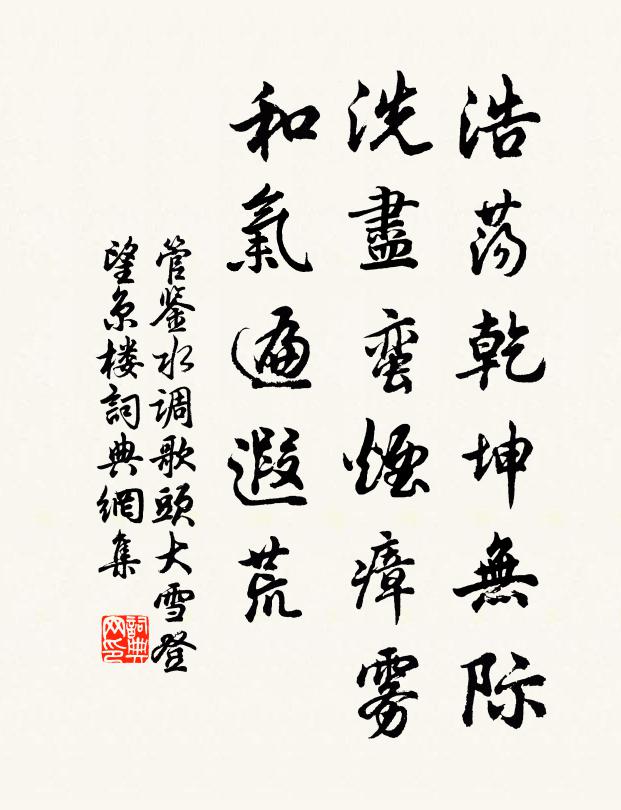 浩荡乾坤無际
洗盡蛮煙瘴雾
和氣遍遐荒
管鉴水调歌頭大雪登
望京楼詞典網集
詞典网印